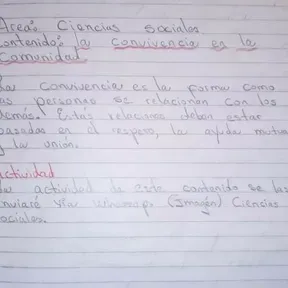 Area: Ciencias sociales
contenido: la convivencia en la
Comunidad
La convivencia es la forma como
las personas se relacionan con los
demás. Estas relaciones deben estar
basadas en el respeto, la ayuda mutua
y la unión.
actividad
La actividad de este contenido se las
enviaré vía whatsapp. (Imagen) Ciencias
sociales.